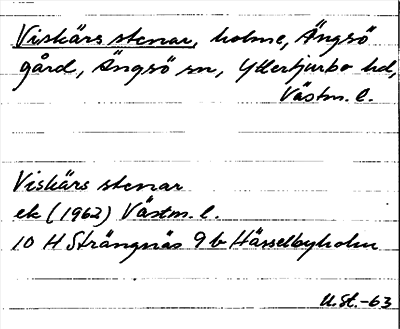 Viskärs stenar, holme, Ängsö
gård, Ängsö sn, Yttertjurbo hd,
Västm. l.
Viskärs stenar
ek (1962) Västm. l.
10 H Strängnäs 9 b Hässelbyholm
U.St.-63